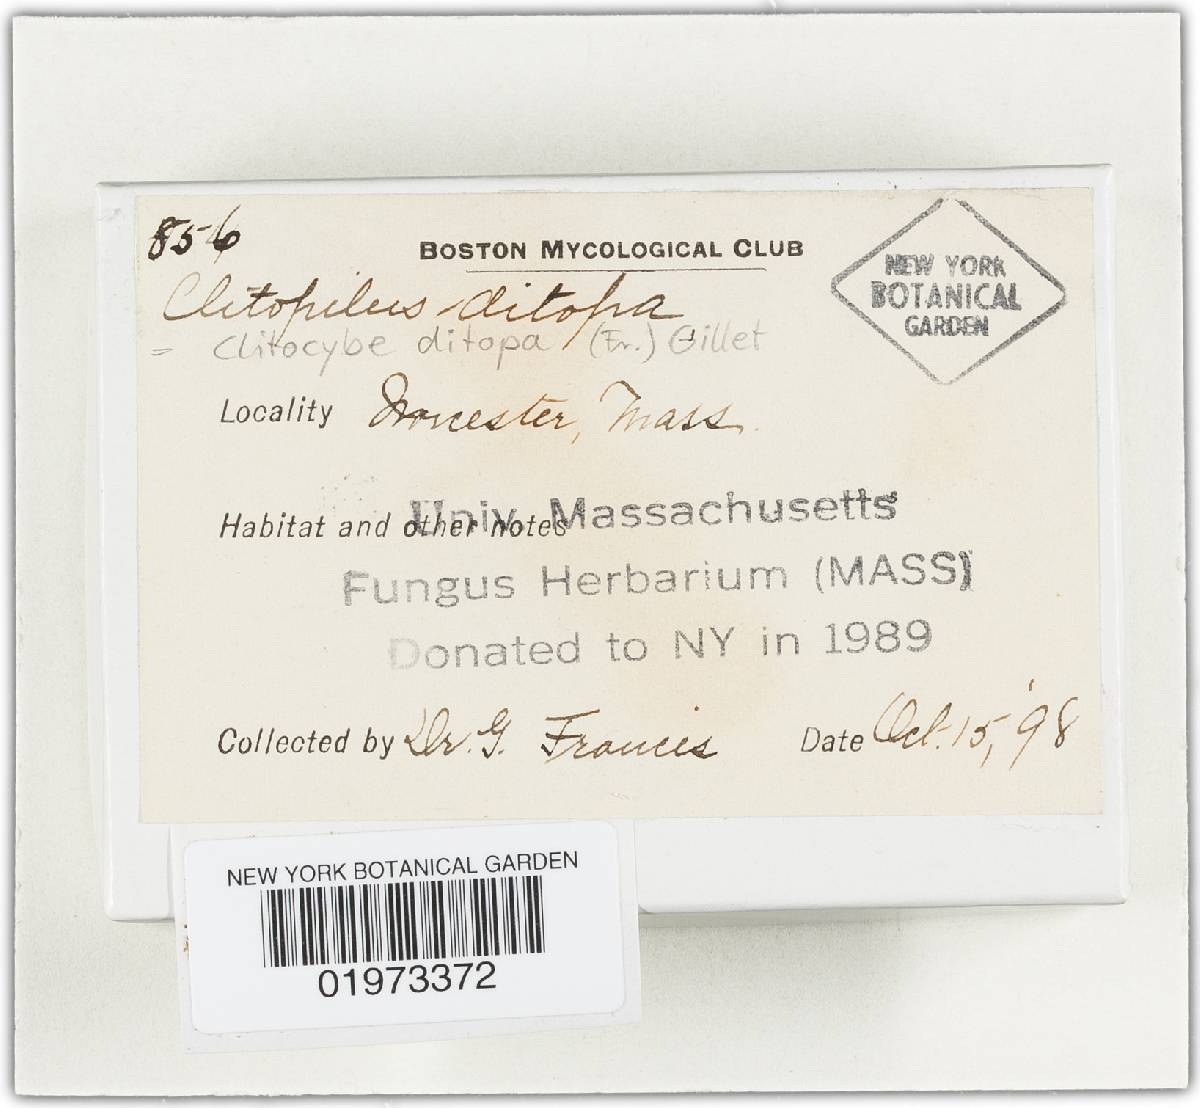 856
BOSTON MYCOLOGICAL CLUB
NEW YORK
BOTANICAL
GARDEN
Clitopilus ditopa
= Clitocybe ditopa (Fr.) Gillet
Locality Worcester, Mass.
Habitat and other notes
Univ. Massachusetts
Fungus Herbarium (MASS)
Donated to NY in 1989
Collected by Dr. G. Francis Date Oct. 15, '98
NEW YORK BOTANICAL GARDEN
01973372